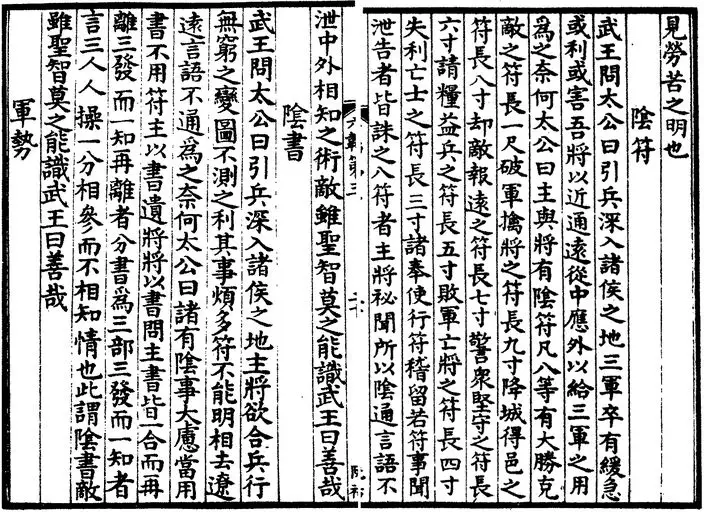 見勞苦之明也
陰符
武王問太公曰引兵深入諸侯之地三軍卒有緩急
或利或害吾將以近通遠從中應外以給三軍之用
爲之奈何太公曰主與將有陰符凡八等有大勝克
敵之符長一尺破軍擒將之符長九寸降城得邑之
符長八寸却敵報遠之符長七寸警衆堅守之符長
六寸請糧益兵之符長五寸敗軍亡將之符長四寸
失利亡士之符長三寸諸奉使行符稽留若符事聞
泄告者皆誅之八符者主將祕聞所以陰通言語不
泄中外相知之術敵雖聖智莫之能識武王曰善哉
陰書
武王問太公曰引兵深入諸侯之地主將欲合兵行
無窮之變圖不測之利其事煩多符不能明相去遼
遠言語不通爲之奈何太公曰諸有陰事大慮當用
書不用符主以書遺將將以書問主書皆一合而再
離三發而一知再離者分書爲三部三發而一知者
言三人人操一分相參而不相知情也此謂陰書敵
雖聖智莫之能識武王曰善哉
軍勢